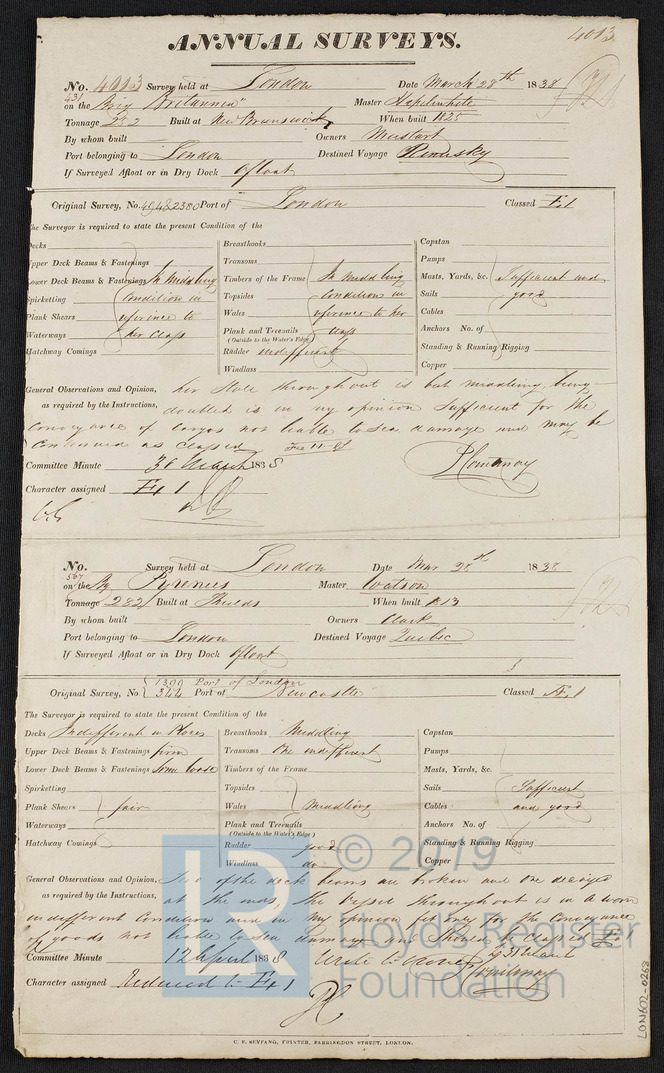 ANNUAL SURVEYS.
4013
No. 4013 Survey held at London Date March 28th 1838
431 on the Brig Britannia" Master
Tonnage 252 Built at New Brunswick When built 1825
By whom built Owners Mustart
Port belonging to London Destined Voyage
If Surveyed Afloat or in Dry Dock Afloat
Original Survey, No. 2380 Port of London Classed Æ 1
The Surveyor is required to state the present Condition of the
Decks
Upper Deck Beams & Fastenings
Lower Deck Beams & Fastenings In Middling
Spirketting Condition in
Plank Shears reference to
Waterways her Class
Hatchway Comings
Breasthooks
Transoms
Timbers of the Frame In Middling
Topsides Condition in
Wales reference to her
Plank and Treenails Class
(Outside to the Water's Edge)
Rudder indifferent
Windlass
Capstan
Pumps
Masts, Yards, &c. Sufficient and
Sails good
Cables
Anchors No. of
Standing & Running Rigging
Copper
General Observations and Opinion, her State throughout is but middling, being
as required by the Instructions, doubled is in my opinion Sufficient for the
Conveyance of Cargos not liable to Sea damage and may be
Continued as Classed
Committee Minute 30 March 1838
Character assigned Æ 1
No. Survey held at London Date Mar 28th 1838
567 on the Bg Pyrenees Master Watson
Tonnage 282 Built at Shields When built 1813
By whom built Owners Clark
Port belonging to London Destined Voyage Quebec
If Surveyed Afloat or in Dry Dock Afloat
1300 Port of London
Original Survey, No 344 Port of Newcastle Classed Æ 1
The Surveyor is required to state the present Condition of the
Decks Indifferent in Places
Upper Deck Beams & Fastenings firm
Lower Deck Beams & Fastenings Some loose
Spirketting
Plank Shears fair
Waterways
Hatchway Comings
Breasthooks Middling
Transoms One indifferent
Timbers of the Frame
Topsides
Wales Middling
Plank and Treenails
(Outside to the Water's Edge)
Rudder good
Windlass do
Capstan
Pumps
Masts, Yards, &c.
Sails Sufficient
Cables and good
Anchors No. of
Standing & Running Rigging
Copper
General Observations and Opinion, Two of the deck beams are broken and one decayed
as required by the Instructions, at the ends, the Vessel throughout is in a worn
indifferent Condition and in my opinion fit only for the Conveyance
of goods not liable to Sea damage and should be Classed
Committee Minute 12 April 1838 Write to Owner
Character assigned Reduced to Æ 1
C. F. SEYFANG, PRINTER, FARRINGDON STREET, LONDON.
LON602-0268
LR
© 2019
Lloyd's Register
Foundation